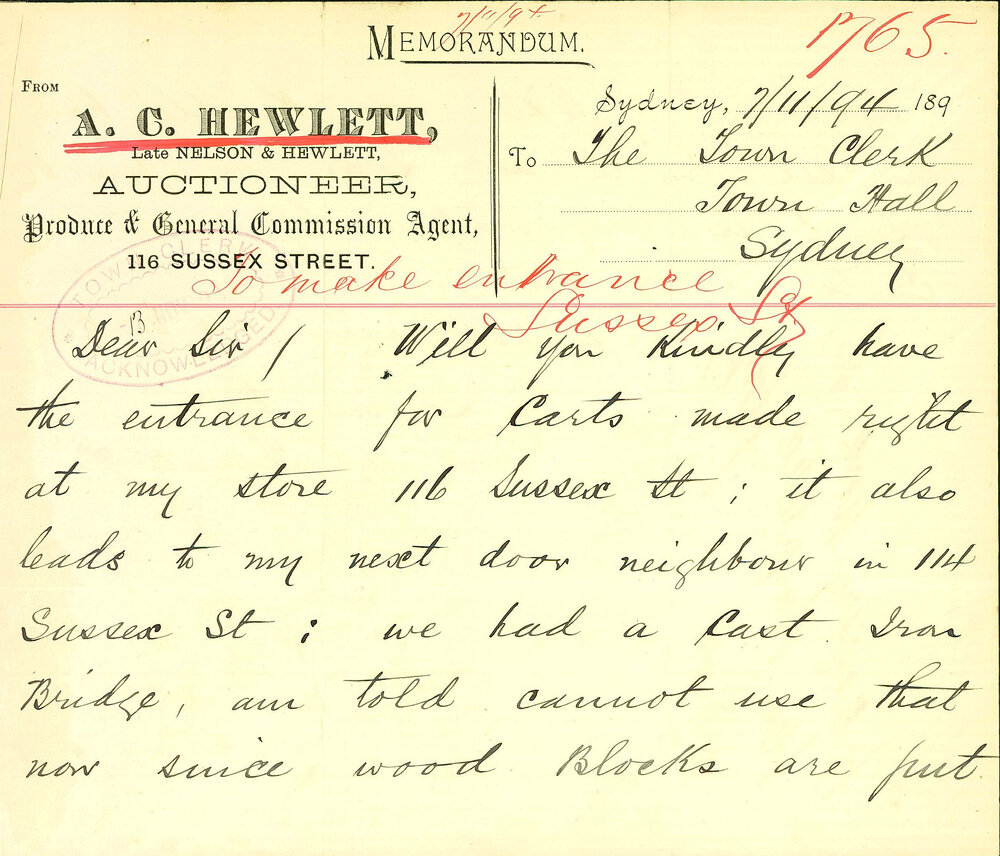 7/11/94.
1765.
MEMORANDUM.
FROM
A. C. HEWLETT,
Late NELSON & HEWLETT,
AUCTIONEER,
Produce & General Commission Agent,
116 SUSSEX STREET.
Sydney, 7/11/94 189
To The Town Clerk
Town Hall
Sydney
To make entrance
Sussex St
TOWN CLERK
13 NOV
ACKNOWLEDGED
Dear Sir / Will you Kindly have
the entrance for Carts made right
at my store 116 Sussex St ; it also
leads to my next door neighbour in 114
Sussex St ; we had a Cast Iron
Bridge, am told cannot use that
now since wood Blocks are put